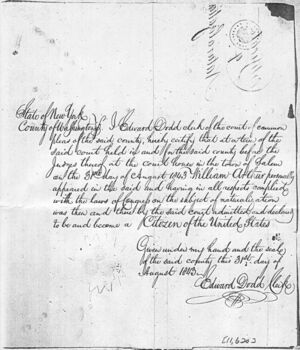 State of New York
County of Washington I Edward Dodd clerk of the court of common
pleas of the said county, hereby certify that at a term of the
said court held in and for the said county before the
Judges thereof at the court house in the town of Salem
on the 31st day of August 1843 William personally
appeared in the said and having in all respects complied
with the laws of congress on the subject of naturalization
was then and there by the said court admitted and declared
to be and become a Citizen of the United States
Given under my hand and the seal
of the said county this 31st day of
August 1843.
Edward Dodd Clerk